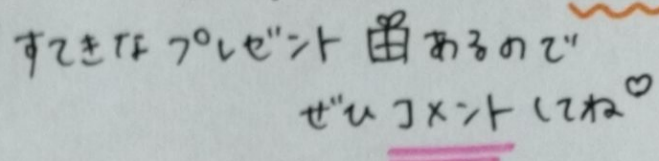 すてきなプレゼント🎁あるので
ぜひコメントしてね♡